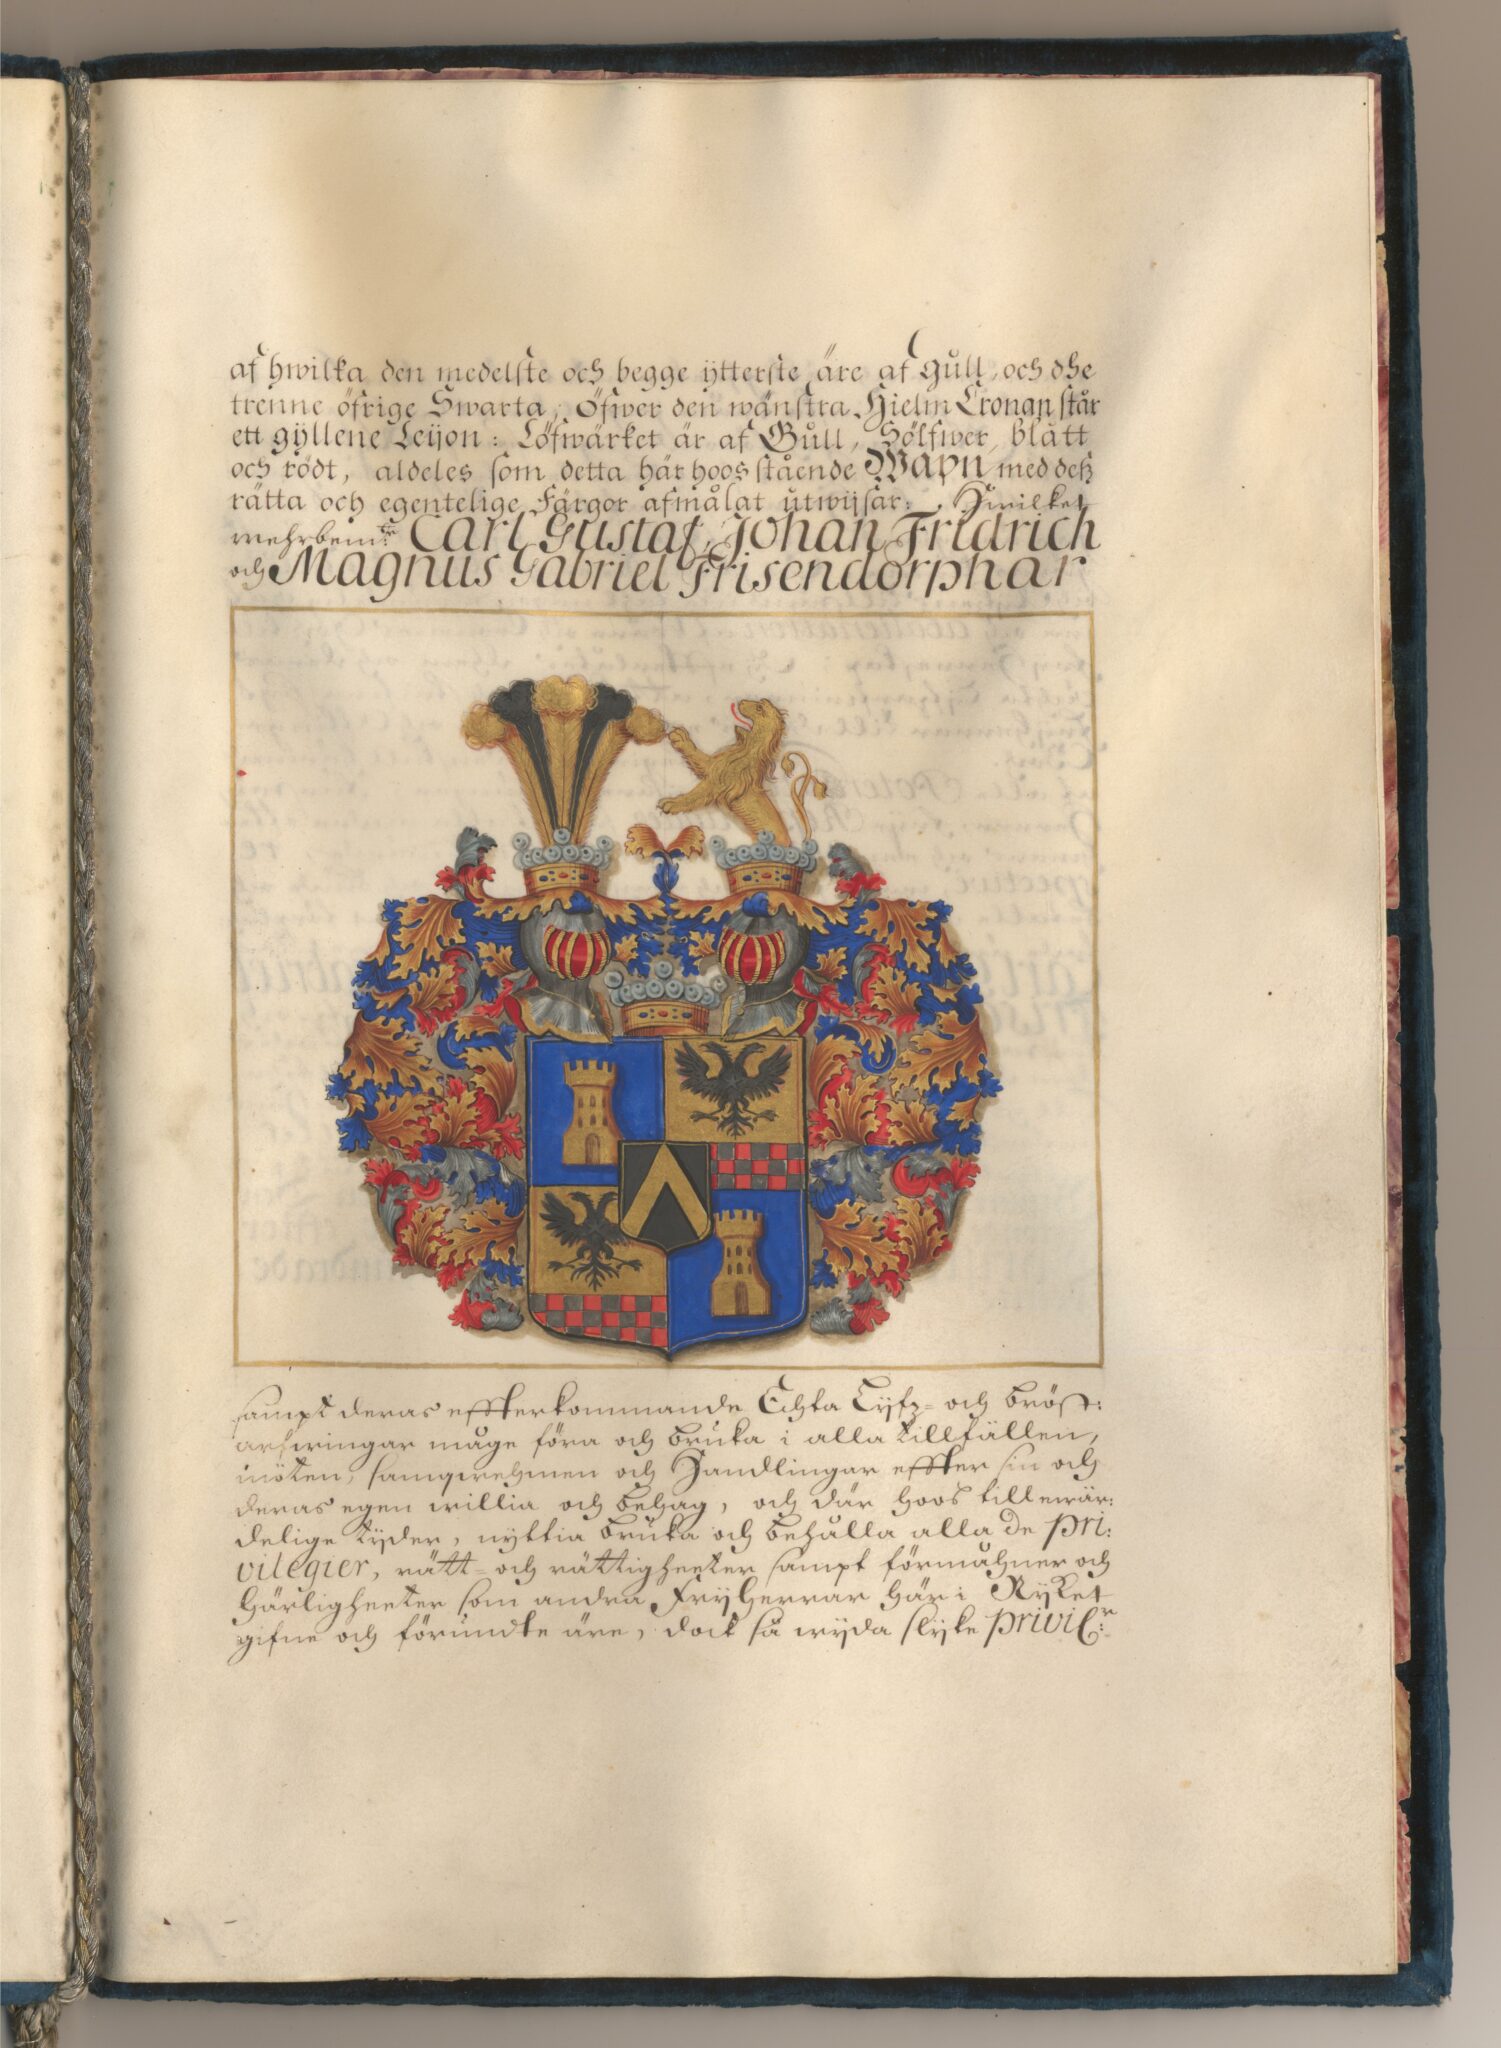 af hwilka den medelste och begge ytterste äre af gull, och dhe
trenne öfrige Swarta, Öfwer den wänstra Hielm Cronan står
ett gyllene Leijon: Löfwärket är af Gull, Sölfwer, blått
och rödt, aldeles som detta här hoos stående Wapn med deß
rätta och egentelige Färgor afmålat utwijsar. Hwilket
mehrbem:te Carl Gustaf, Johan Fridrich
och Magnus Gabriel Frisendorphar
sampt deras effterkommande Echta Lijfz- och Bröst:
arfwingar måge föra och bruka i alla tillfällen,
möten, samqwehmen och Handlingar effter sin och
deras egen willia och behag, och där hoos till ewär:
delige tijder, nyttia bruka och behålla alla de Pri:
vilegier, rätt- och rättigheeter sampt förmåhner och
Härligheeter som andra Frijherrar här i Rijket
gifne och förundte äre, dock så wijda slijke Privil:r